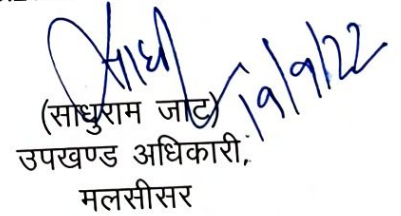 साधु 19/9/22
(साधुराम जाट)
उपखण्ड अधिकारी,
मलसीसर